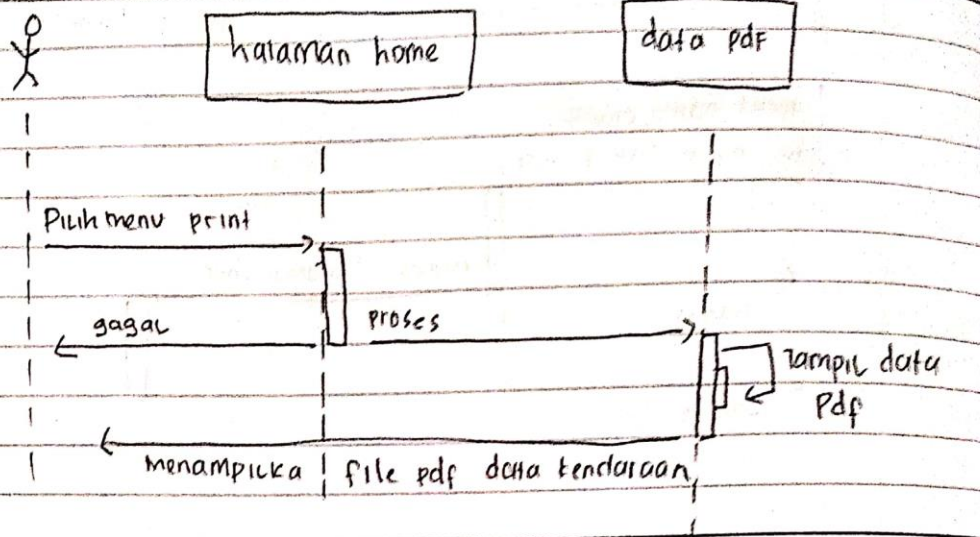 halaman home
data pdf
Pilih menu print
gagal
proses
Tampil data
pdf
menampilka file pdf data kendaraan